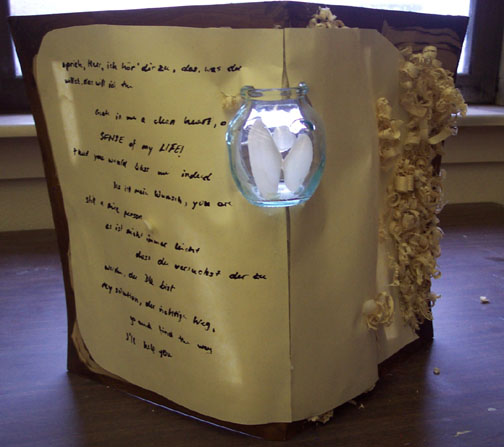 sprich, Herr, ich hör' dir zu, das, was du
willst, das will ich tun
a clean heart,
SENSE of my LIFE!
that you would like me indeed
Es ist mein Wunsch, you are
person
es ist nicht immer leicht
dass du versuchst der zu
werden, der Du bist
my solution, der richtige Weg,
find the way
I'll help you